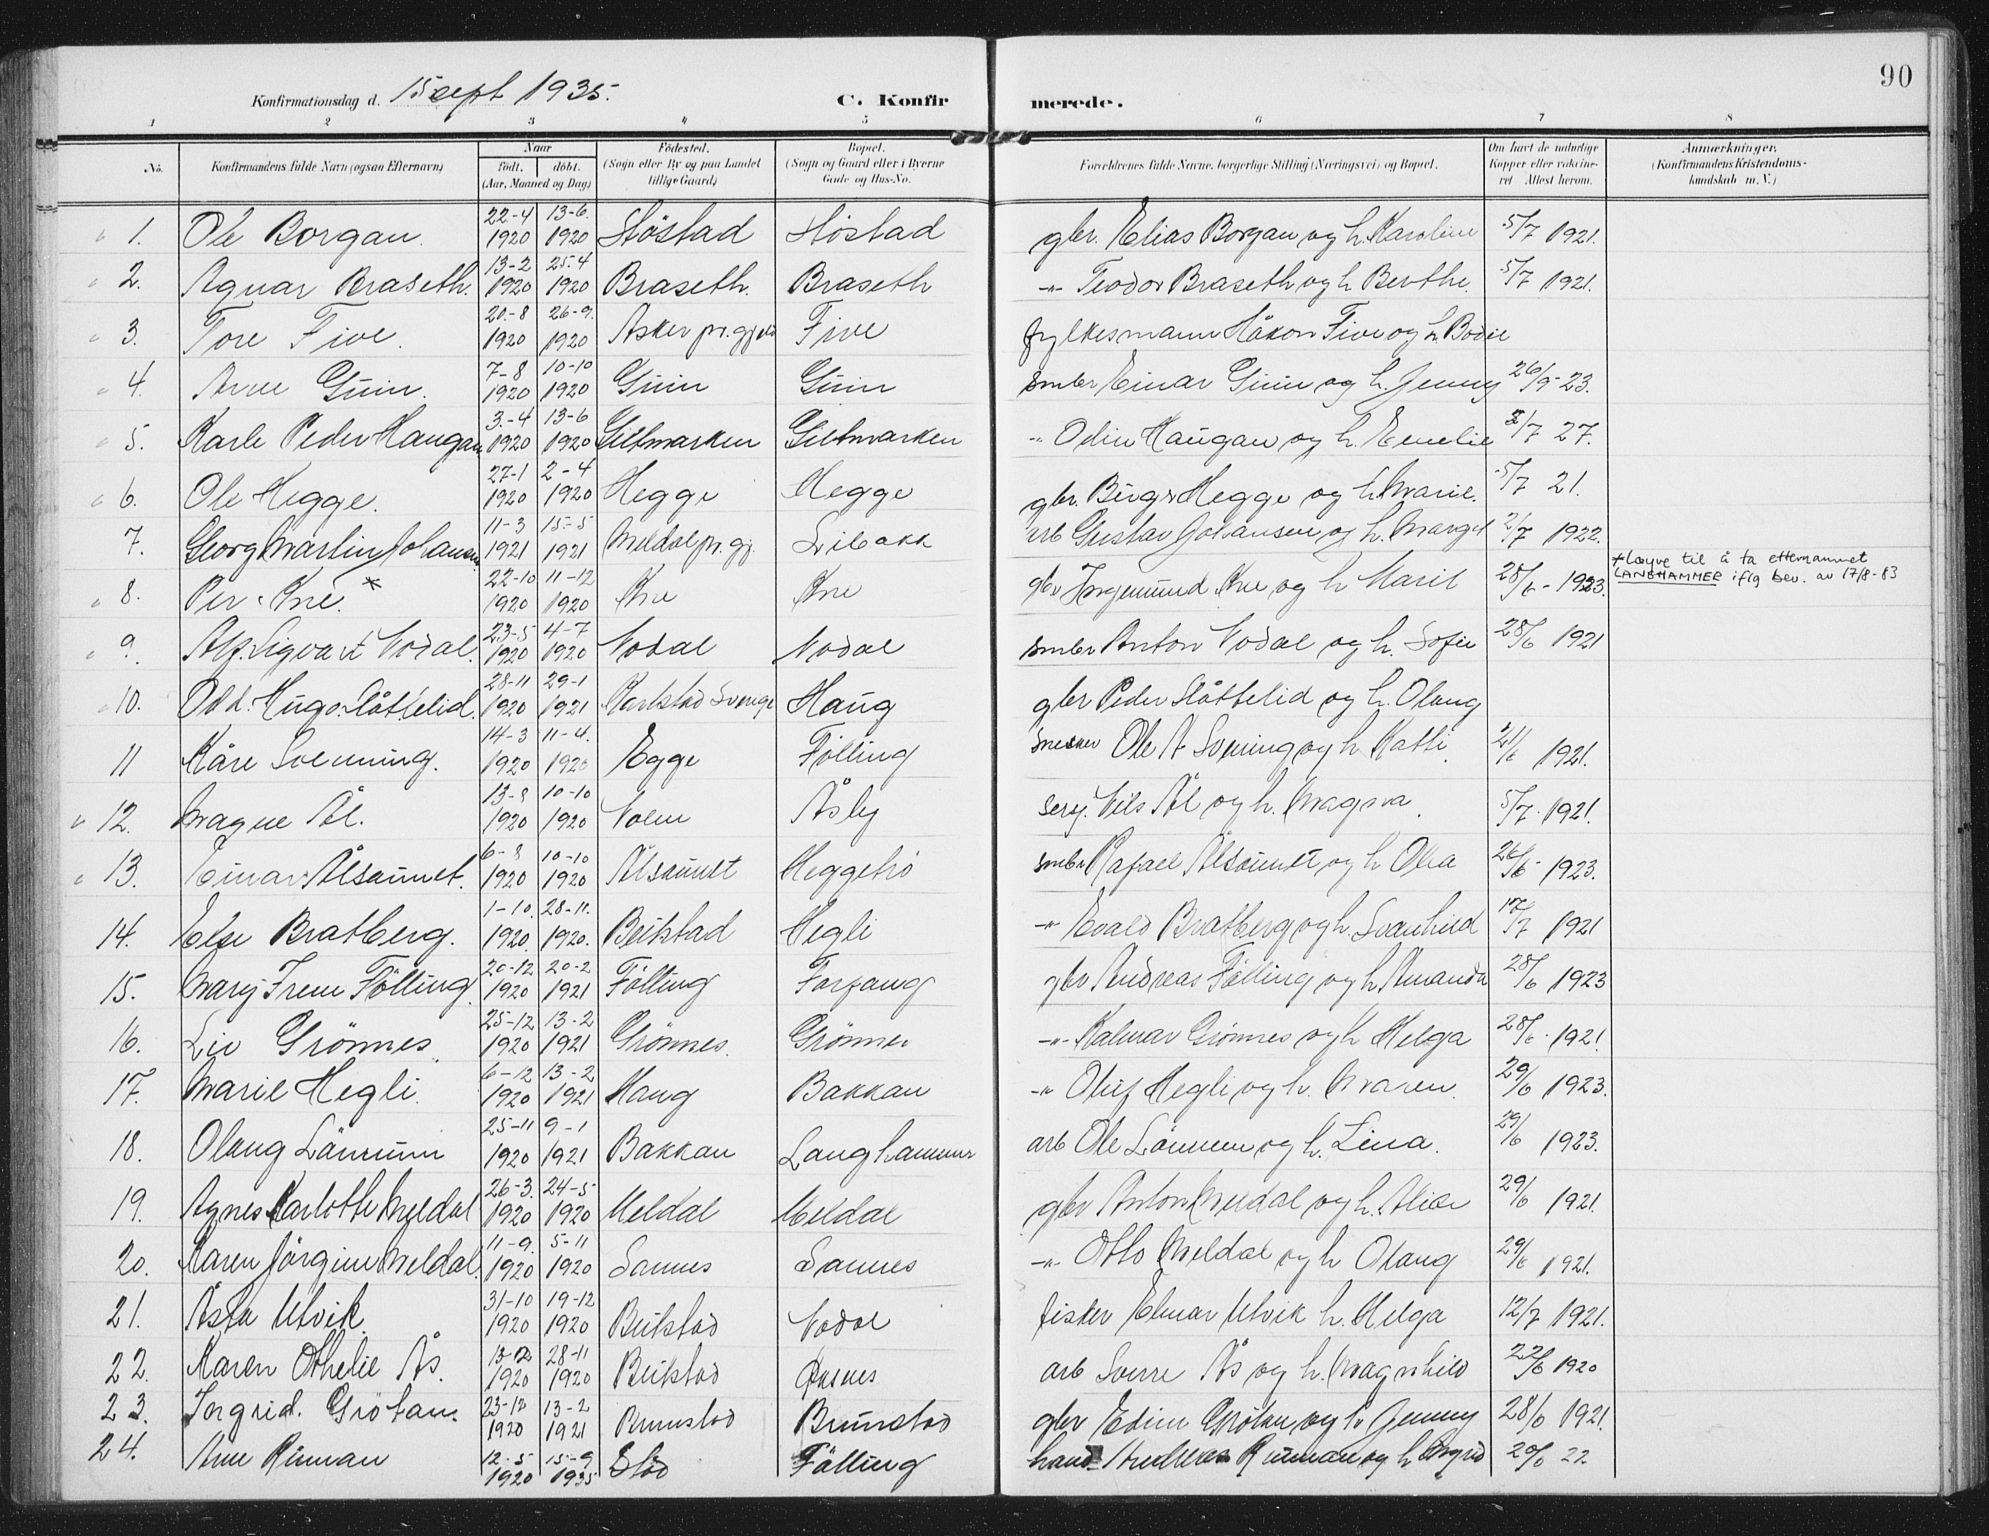 90
Konfirmationsdag d. 15 sept 1935. C. Konfirmerede.
1 2 3 4 5 6 7 8
No. Konfirmandens fulde Navn (ogsaa Efternavn) Naar født. døbt. (Aar, Maaned og Dag) Fødested. (Sogn eller By og paa Landet tillige Gaard) Bopæl. (Sogn og Gaard eller i Byerne Gade og Hus-No. Forældrenes fulde Navne, borgerlige Stilling (Næringsvei) og Bopæl. Om havt de naturlige Kopper eller vakcineret Attest herom. Anmærkninger. (Konfirmandens Kristendomskundskab m. V.)
1. Ole Borgan. 22-4 1920 13-6. 1920 Höstad Höstad gbr. Elias Borgan og h. Karoline 5/7 1921.
2. Agnar Braseth. 13-2 1920 25-4 1920 Braseth. Braseth -"- Teodor Braseth og h Berthe. 5/7 1921.
3. Tore Five. 20-8 1920 26-9. 1920 Asker pr.gjeld Five fylkesmann Håkon Five og h Bodil
4. Arne Guin. 7-8 1920 10-10 1920 Guin Guin smbr Einar Guin og h. Jenny 26/9-23.
5. Karle Peder Haugan 3-4 1920 13-6 1920 Giltmarken Giltmarken -"- Odin Haugan og h. Emelie /7 27.
6. Ole Hegge. 27-1 1920 2-4 1920 Hegge Hegge gbr. Birger Hegge og h Marie. 5/7 21.
7. Georg Martin Johansen 11-3 1921 15-5 1921 Meldal pr.gj. arb Gustav Johansen og h. Margit 2/7 1922.
8. Per Kne.* 22-10 1920 11-12 1920 Kne Kne gbr Ingemund Kne og h Marit 28/6-1923. * Løyve til å ta etternamnet
LANGHAMMER iflg bev. av 17/8-83
9. Alf Sigvart Vodal. 23-5 1920 4-7 1920 Vodal Vodal smbr Anton Vodal og h. Sofie 28/6 1921
10. Odd Hugo Slåttelid. 28-11 1920 29-1 1921 Karlstad Sverige Haug gbr Peder Slåttelid og h. Olaug
11 Kåre Svenning. 14-3 1920 11-4. 1920 Egge Fölling snekker Ole A Svenning og h Katti. 21/6 1921.
12. Magne Ål. 13-8 1920 10-10 1920 Volen Åsly serg. Nils Ål og h. Magna. 5/7-1921.
13. Einar Ålsaunet. 6-8 1920 10-10 1920 Ålsaunet Heggetrö smbr Rafael Ålsaunet og h Olea 26/6-1923.
14. Else Bratberg. 1-10. 1920. 28-11. 1920. Beitstad Hegli -"- Evald Bratberg og h. Svanhild 17/7 1921
15. Mary Irene Fölling. 20-12 1920 20-2 1921 Fölling Forfang gbr Andreas Fölling og h Amanda 28/6 1923
16. Liv Grönnes. 25-12 1920 13-2 1921 Grönnes. Grönnes -"- Kalmar Grönnes og h Helga 28/6. 1921.
17. Marie Hegli. 6-12 1920 13-2 1921 Haug Bakkan -"- Oluf Hegli og h. Maren. 29/6 1923.
18. Olaug Lännum 25-11 1920 9-1 1921 Bakkan Langhammer arb Ole Lönnum og h. Lina. 29/6 1923.
19. Agnes Karlotte Meldal 26-3. 1920 24-5 1920 Meldal Meldal gbr Anton Meldal og h. Alise 29/6 1921.
20. Karen Jörgine Meldal. 11-9. 1920 5-11 1920 Sannes Sannes -"- Otto Meldal og h Olaug 29/6 1921.
21. Åsta Utvik. 31-10 1920 19-12 1920 Beitstad Vodal fisker Elmar Utvik h. Helga 12/7 1921.
22. Karen Othelie Ås. 1920 28-11 1920 Beitstad arb Sverre Ås og h. Magnhild 22/6 1920
23. Ingrid. Grötan. 23-12 1920 13-2 1921 Brunstad Brunstad gbr Edin Grötan og h Jenny 28/6 1921.
24. Arne Rinnan 12-5 1920 15-9 1935 Stod Fölling hand. Rinnan og h Ingrid 20/6 22